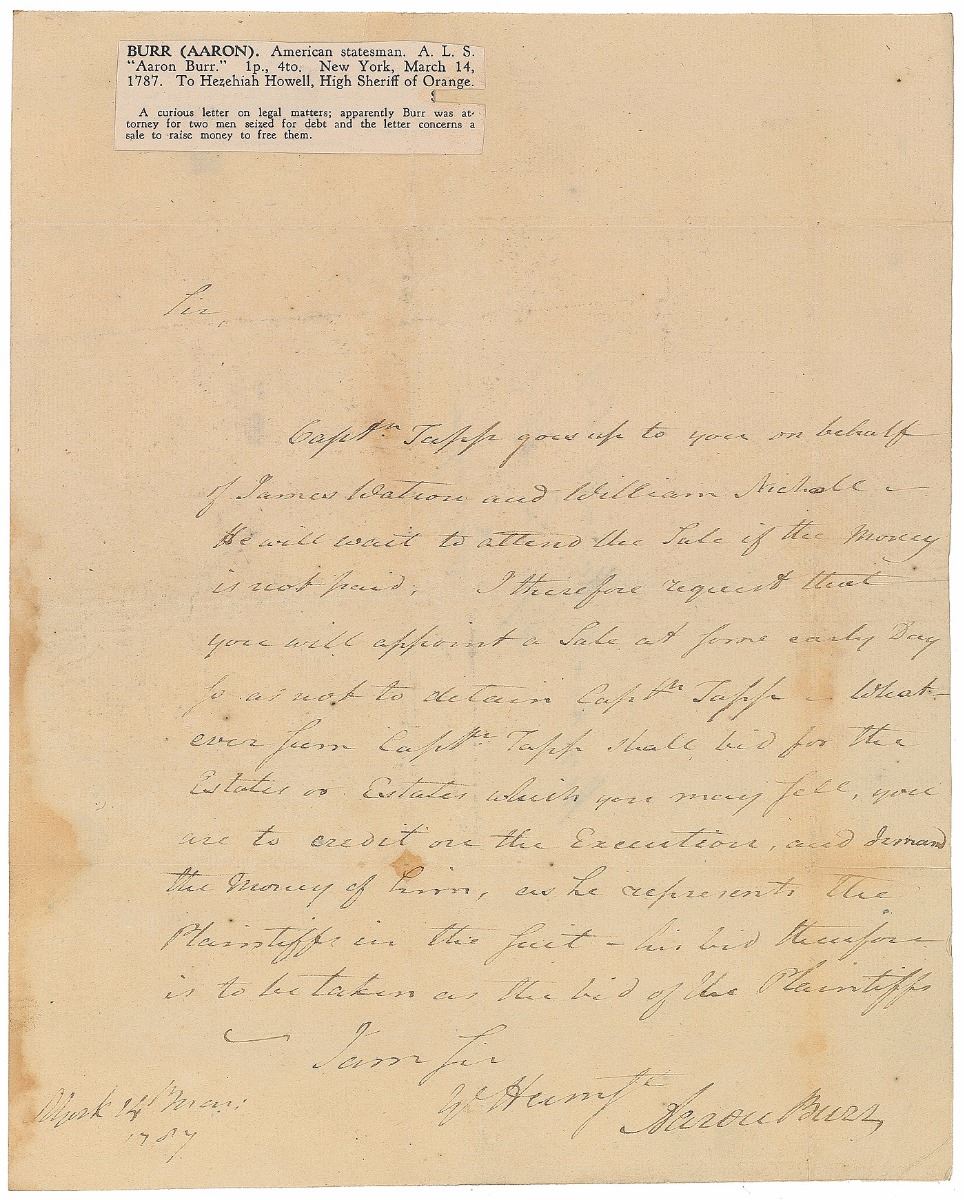 BURR (AARON). American statesman. A. L. S.
"Aaron Burr." 1p., 4to. New York, March 14,
1787. To Hezehiah Howell, High Sheriff of Orange.
$
A curious letter on legal matters; apparently Burr was at-
torney for two men seized for debt and the letter concerns a
sale to raise money to free them.
Sir,
Captn Tapp goes up to you on behalf
of James Watson and William Nicholl –
He will wait to attend the Sale if the Money
is not paid. I therefore request that
you will appoint a Sale at some early Day
so as not to detain Captn Tapp – What-
ever sum Captn Tapp shall bid for the
Estates or Estates which you may sell, you
are to credit on the Execution, and demand
the Money of him, as he represents the
Plaintiffs in the suit – his bid therefore
is to be taken as the bid of the Plaintiffs
I am Sir
Yr Huml St
Aaron Burr
NYork 14 Mar:
1787